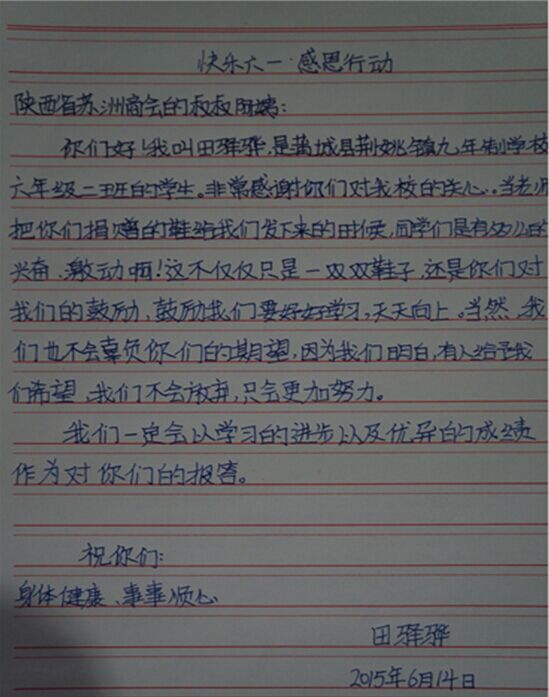 快乐六一·感恩行动
陕西省苏州商会的叔叔阿姨：
你们好！我叫田驿骅，是蒲城县荆姚镇九年制学校
六年级二班的学生。非常感谢你们对我校的关心。当老师
把你们捐赠的鞋给我们发下来的时候，同学们是有多么的
兴奋、激动啊！这不仅仅只是一双双鞋子，还是你们对
我们的鼓励，鼓励我们要好好学习，天天向上。当然，我
们也不会辜负你们的期望，因为我们明白，有人给予我
们希望，我们不会放弃，只会更加努力。
我们一定会以学习的进步以及优异的成绩
作为对你们的报答。
祝你们：
身体健康、事事顺心
田驿骅
2015年6月14日